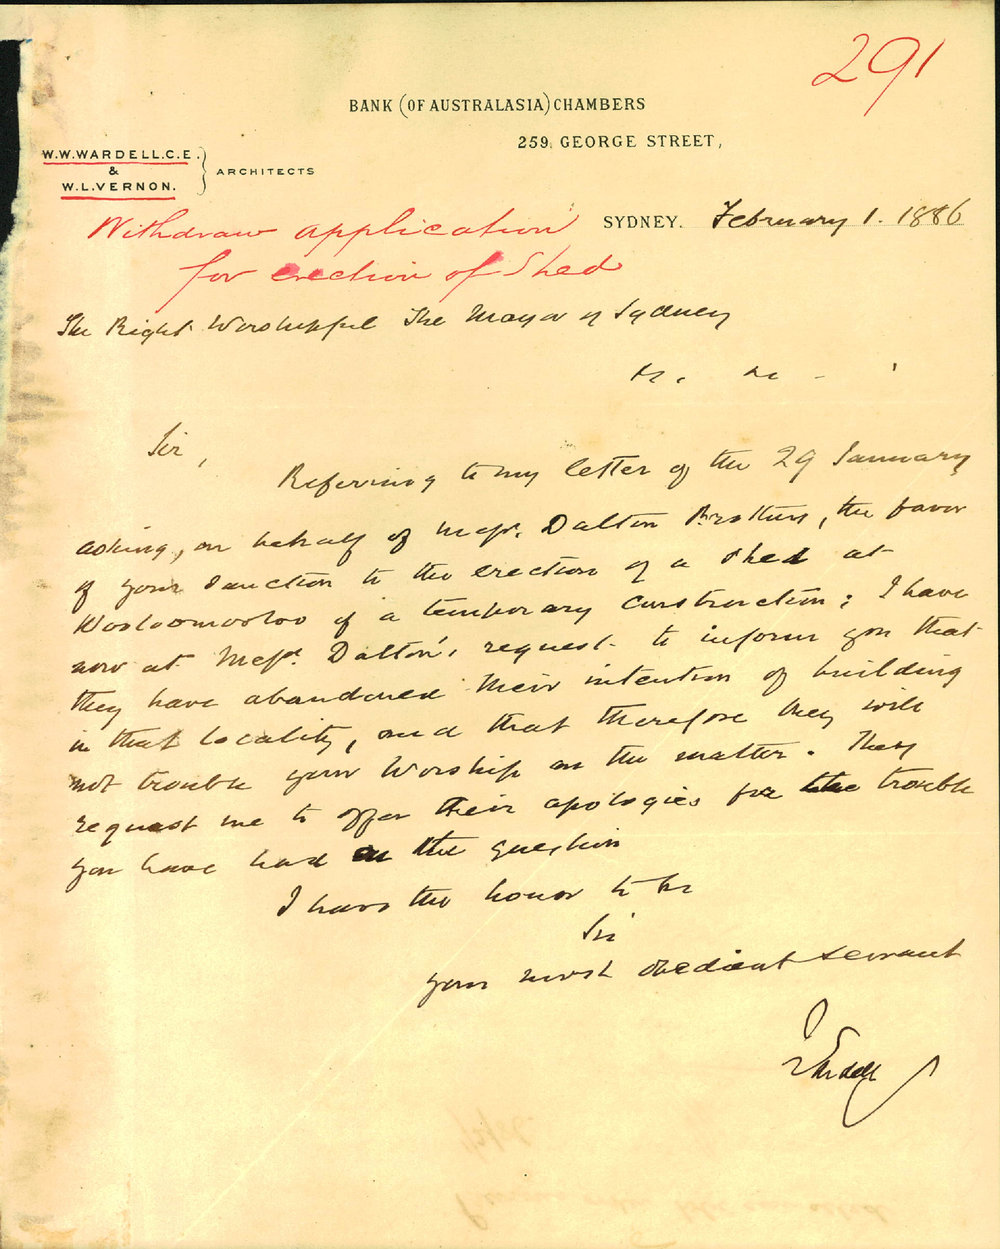 291
BANK (OF AUSTRALASIA) CHAMBERS
259 GEORGE STREET,
W.W.WARDELL.C.E.
&
W.L.VERNON.
ARCHITECTS
SYDNEY. February 1. 1886
Withdraw application
for erection of Shed
The Right Worshipful The Mayor of Sydney
Sir,
Referring to my letter of the 29 January
asking, on behalf of Messrs. Dalton Brothers, the favor
of your sanction to the erection of a shed at
Woolloomooloo of a temporary construction; I have
now at Messrs. Dalton's request to inform you that
they have abandoned their intention of building
in that locality, and that therefore they will
not trouble your Worship on the matter. They
request me to offer their apologies for the trouble
you have had on the question
I have the honor to be
Sir
your most obedient servant
Wardell